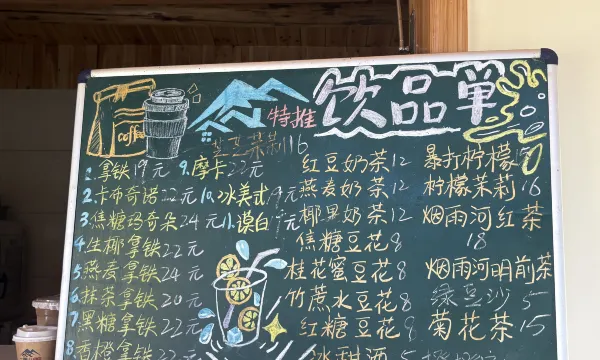 coffee
特推
饮品单
16
1.拿铁19元
2.卡布奇诺22元
3焦糖玛奇朵24元
4生椰拿铁22元
5燕麦拿铁24元
6.抹茶拿铁20元
7黑糖拿铁22元
8香橙拿铁22元
9.摩卡22元
10.冰美式
11.馥白
红豆奶茶12
燕麦奶茶12
椰果奶茶12
焦糖豆花8
桂花蜜豆花8
竹蔗水豆花8
红糖豆花8
冰甜酒5
暴打柠檬
柠檬茉莉16
烟雨河红茶
18
烟雨河明前茶
绿豆沙5
菊花茶15